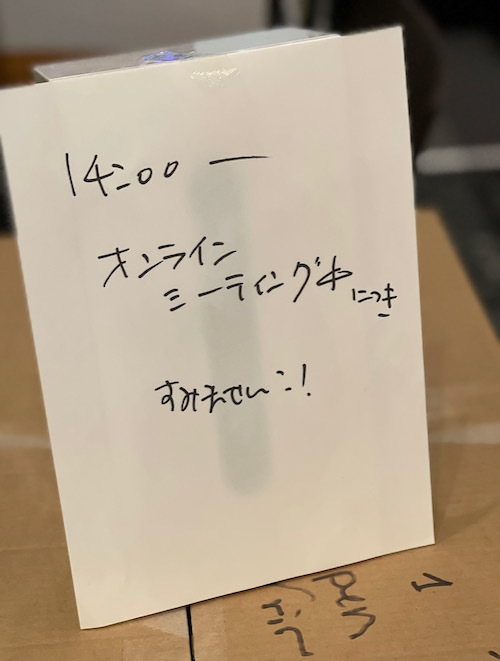 14:00 ー
オンライン
ミーティング中につき
すみません:!
1
pen
rin